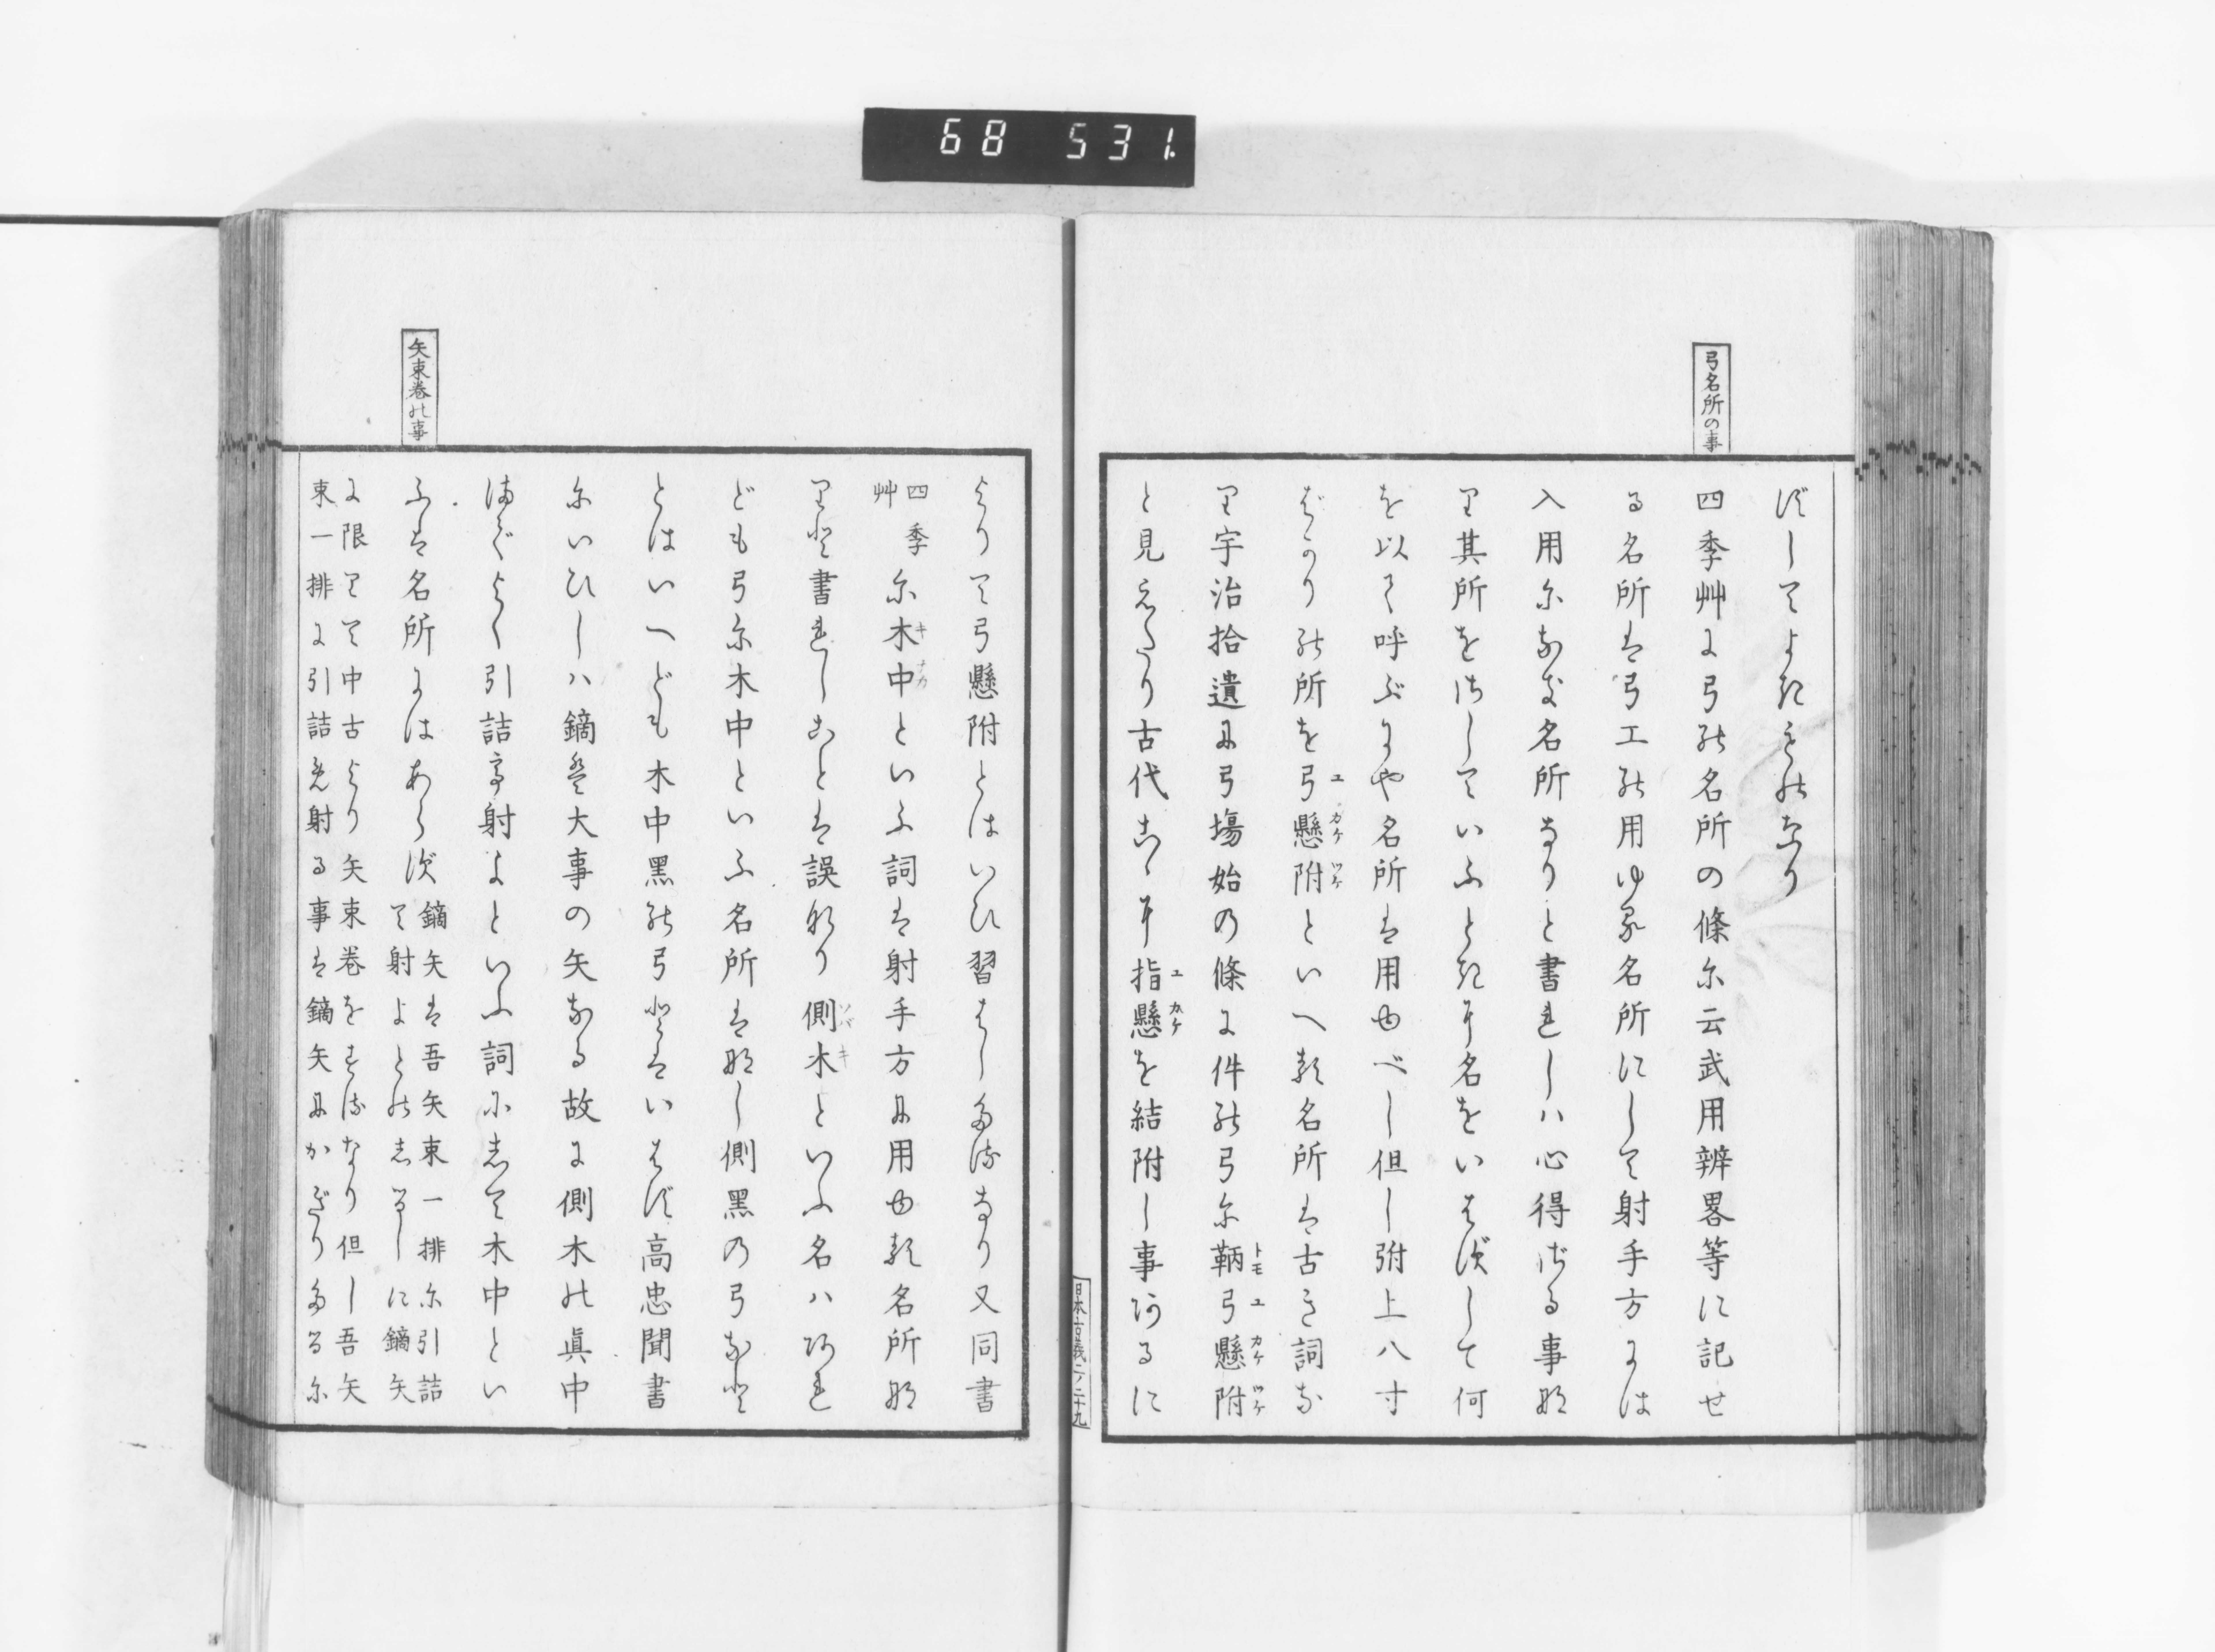 68 531
弓名所の事
ずしてよきものなり
四季艸に弓の名所の條に云武用辨畧等に記せ
る名所は弓工の用ゆる名所にして射手方には
入用になき名所なりと書れしハ心得ざる事な
り其所をさしていふときに名をいはずして何
を以て呼ぶにや名所は用ゆべし但し弣上八寸
ばかりの所を弓懸附といへる名所は古き詞な
ユ カケ ツケ
り宇治拾遺に弓塲始の條に件の弓に鞆弓懸附
トモ ユ カケ ツケ
と見えたり古代こゝに指懸を結附し事あるに
ユ カケ
よりて弓懸附とはいひ習はしたるなり又同書
四季艸に木中といふ詞は射手方に用ゆる名所な
キ ナカ
りと書れしことは誤なり側木といふ名ハあれ
ソバ キ
ども弓に木中といふ名所はなし側黑の弓なと
とはいへども木中黑の弓とはいはず高忠聞書
にいひしハ鏑は大事の矢なる故に側木の眞中
までよく引詰て射よといふ詞にして木中とい
ふは名所にはあらず
鏑矢は吾矢束一排に引詰
て射よとのしるしに鏑矢
に限りて中古より矢束巻をするなり但し吾矢
束一排に引詰て射る事は鏑矢にかぎりたるに
矢束巻の事